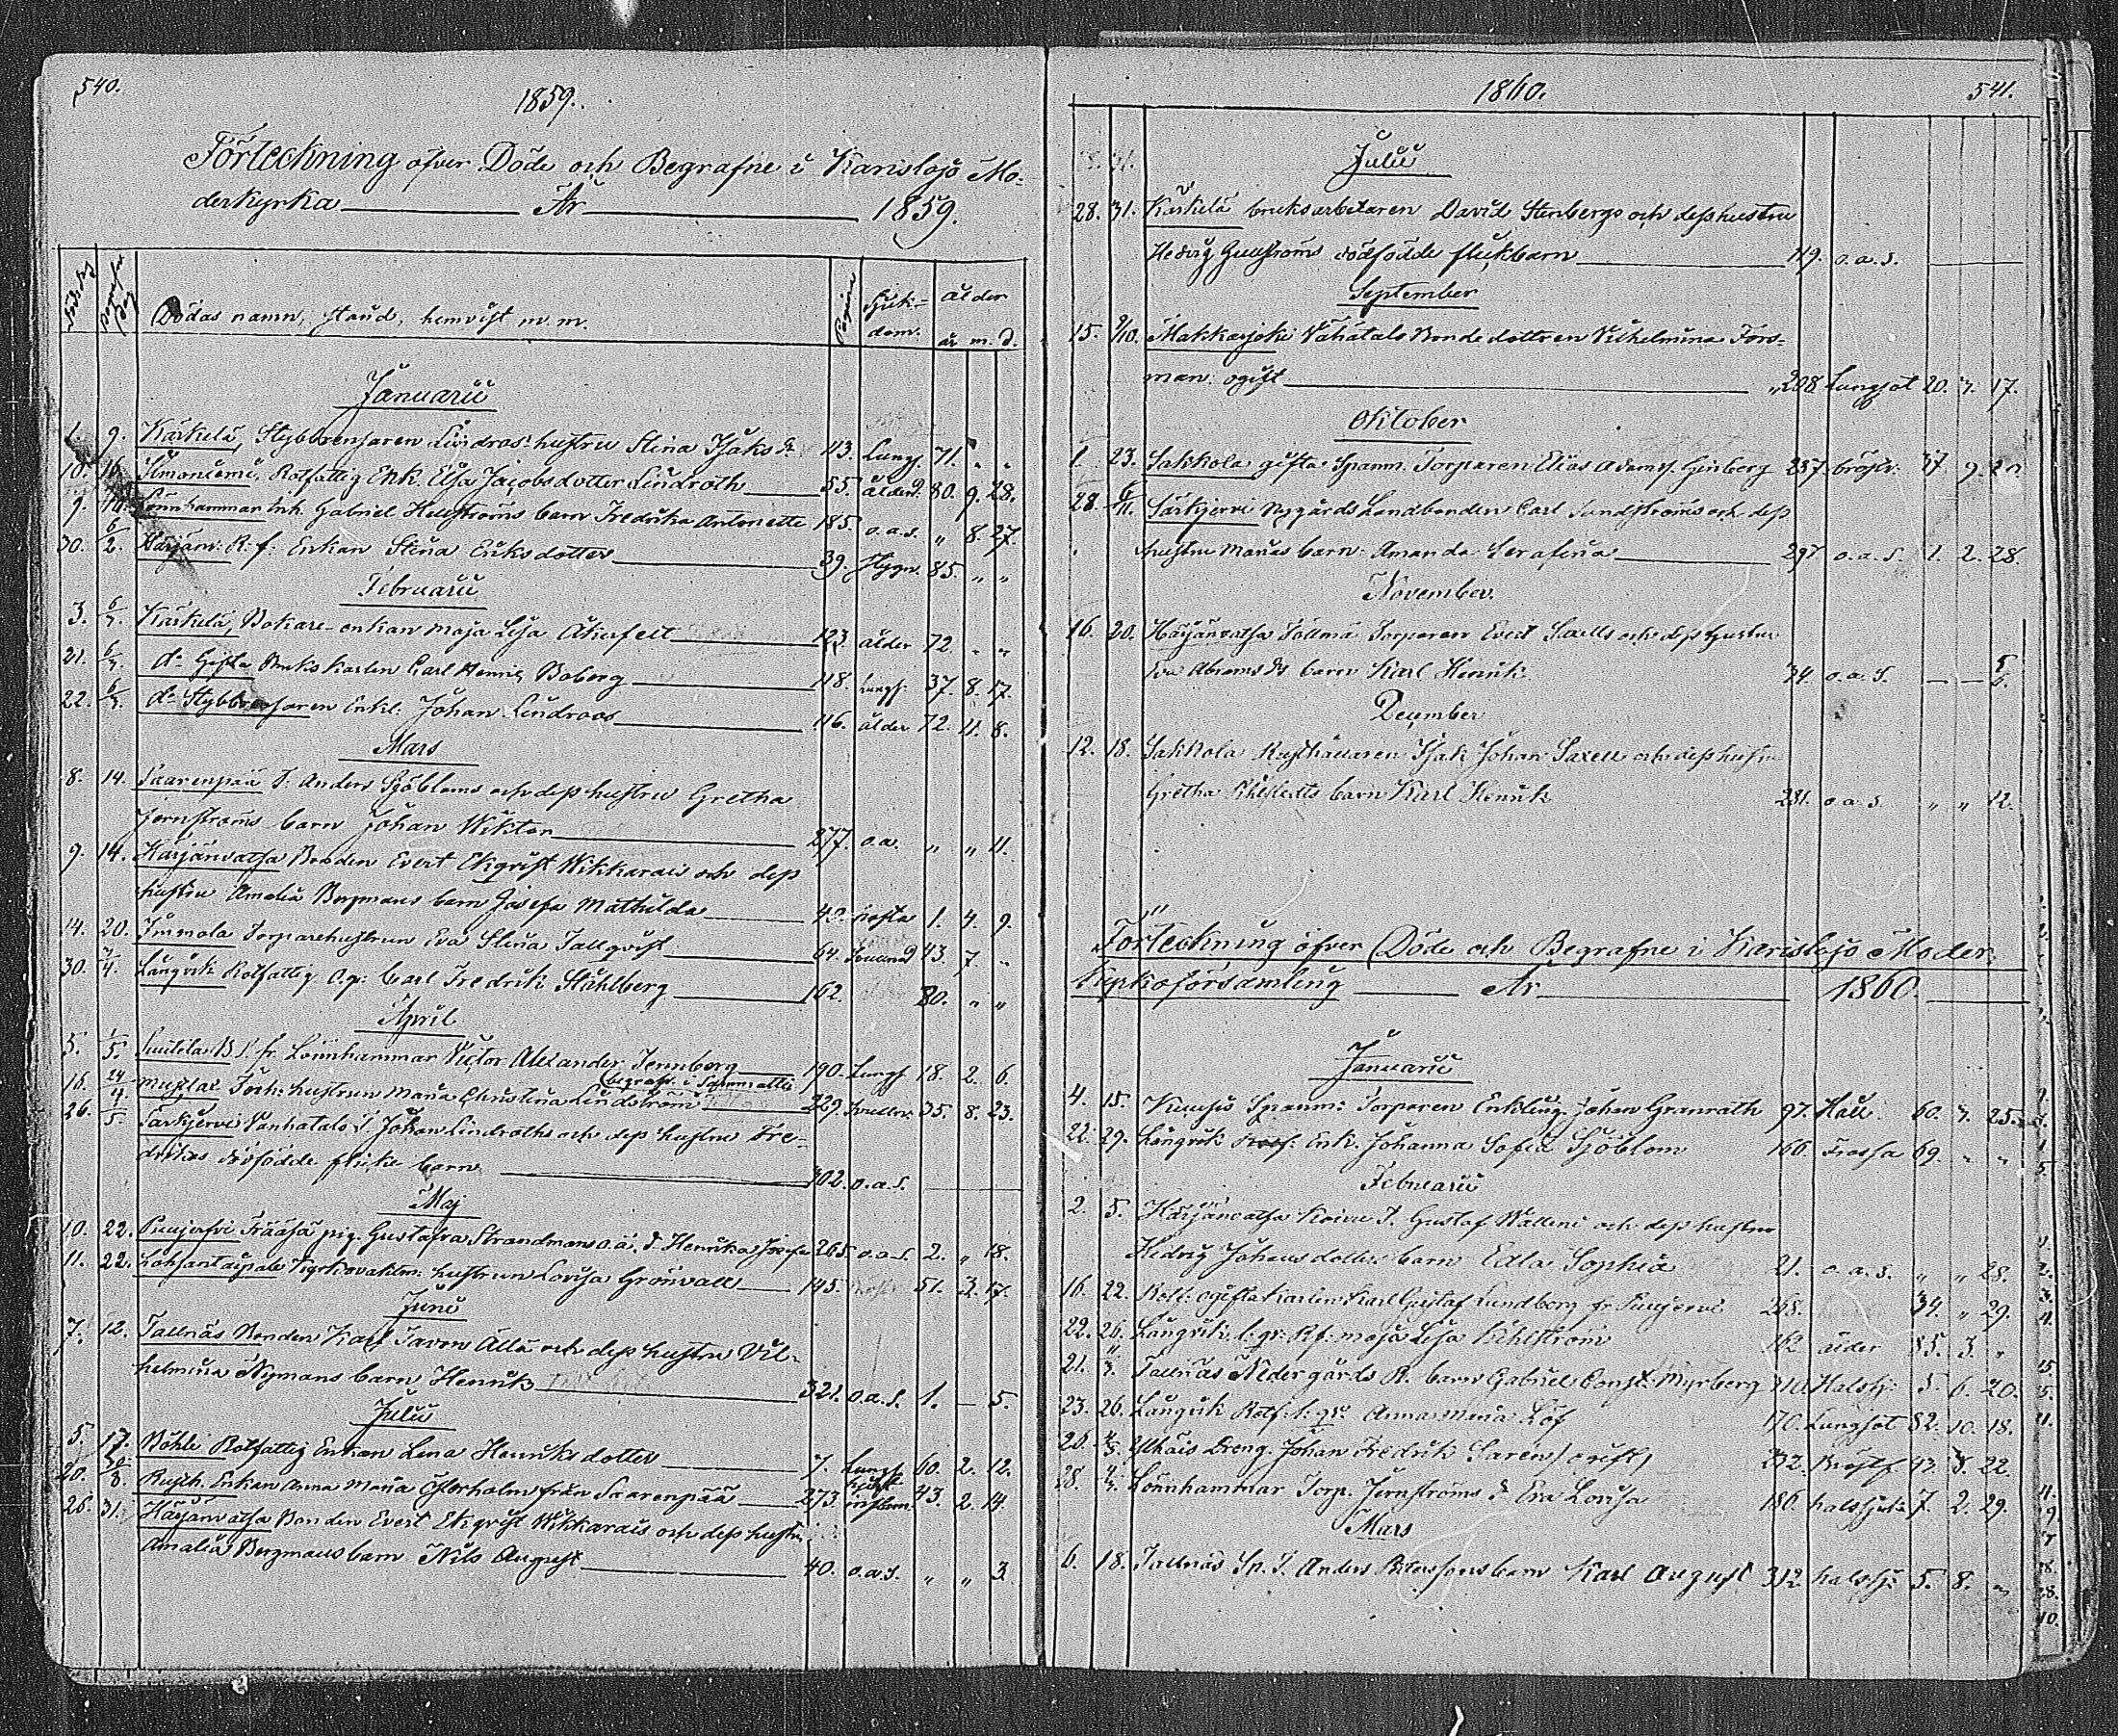 540.
1859.
Förteckning öfver Döde och Begrafne i Karislojo Mo-
derkyrka År 1859.
Dödas namn, stånd, hemvist m. m. Pagina Sjuk- ålder
dom. år m. d.
Januarii
1. 9. Kärkelä, Stybbrensaren Lindroos' hustru Stina Isaks dr 113. Lungs. 71. " "
10. 16. Ilmoniemi, Rotfattig Enk. Elsa Jacobsdotter Lindroth 55. ålderd. 80. 9. 28.
9. 16. Lönnhammar Inh. Gabriel Hellströms barn Fredrika Antonette 185. o.a.s. " 8. 27.
30. 6/2. Härjänv. R. f: Enkan Stina Eriksdotter 39. Håll. 85. " "
Februarii
3. 6/3. Kärkelä, Bokare-enkan Maja Lisa Åkerfelt 123. ålder 72. " "
21. 6/3. do Gifta Brukskarlen Carl Henric Boberg 118. Lungs. 37. 8. 17.
22. 6/3. do Stybbrensaren Enkl. Johan Lindroos 116. ålder 72. 11. 8.
Mars
8. 14. Saarenpää T. Anders Sjöbloms och dess hustru Gretha
Jernströms barn Johan Wiktor 277. o.a. " " 11.
9. 14. Härjänvatsa Bonden Evert Ekqvist Wikkarais och dess
hustru Amalia Bergmans barn Josefa Mathilda 40. hosta 1. 4. 9.
14. 20. Immola Torparehustrun Eva Stina Tallqvist 64. 43. 7. "
30. 3/4. Långvik Rotfattig O.g: Carl Fredrik Ståhlberg 162. 80. " "
April
5. 1/5. fr. Lönnhammar Victor Alexander Jernberg 190. Lungs. 18. 2. 6.
(begrafv. i Sammatti
16. 24/4. Mustlax Torp. hustrun Maria Christina Lindström 229. 35. 8. 23.
26. 1/5. Särkjervi Vanhatalo T. Johan Lindroths och dess hustru Fre-
drikas dödfödde flicke barn 302. o.a.s.
Maj
10. 22. Puujärvi Frääsä pig. Gustafva Strandmans o.ä. d. Henrika Josefa 265. o.a.s. 2. " 18.
11. 22. Lohjantaipale Kyrkovaktm: hustrun Lovisa Grönvall 145. 51. 3. 17.
Juni
7. 12. Tallnäs Bonden Karl Favon Alla och dess hustru Vil-
helmina Nymans barn Henrik 321. o.a.s. 1. — 5.
Julii
5. 17. Böhle Rotfattig Enkan Lena Henriksdotter 7. Lungs. 60. 2. 12.
20. 30/8. Rusth. Enkan Anna Maria Österholm från Saarenpää 273. 43. 2. 14.
26. 31. Härjänvatsa Bonden Evert Ekqvist Wikkarais och dess hustru
Amalia Bergmans barn Nils August 40. o.a.s. " " 3.
1860. 541.
Julii
28. 31. Kärkelä bruksarbetaren David Stenbergs och dess hustru
Hedvig Gustströms dödfödde flickbarn 119. o.a.s.
September
15. 9/10. Makkarjoki Vähätalo Bondedottren Vilhelmina Fors-
man: ogift 208 Lungsot 20. 7. 17.
Oktober
1. 23. Sakkola gifta Spanm. Torparen Elias Adamss. Ginberg 287. bröstv. 37 9. 20.
28. 6/11. Särkjervi Nygårds Landbonden Carl Sundströms och dess
hustru Marias barn Amanda Serafina 297 o.a.s. 1. 2. 28.
November.
16. 20. Härjänvatsa Tollmä Torparen Evert Saxells och dess hustru
Eva Abrams dr barn Karl Henrik 34. o.a.s. — — 5.
December
12. 18. Sakkola Rusthållaren Isak Johan Saxell och dess hustru
Gretha barn Karl Henrik 281. o.a.s. " " 12.
Förteckning öfver Döde och Begrafne i Karislojo Moder-
kyrkoförsamling År 1860
Januarii
4. 15. Kuusis Spanm: Torparen Enkling Johan Granroth 97. Håll. 60. 7. 25.
22. 29. Långvik Enk. Johanna Sofia Sjöblom 166. Frossa 69. " "
Februarii
2. 5. Härjänvatsa Koivu T. Gustaf Wallens och dess hustru
Hedvig Johans dotter barn Edla Sophia 21. o.a.s. " " 28.
16. 22. Rotf. ogifta karlen Karl Gustaf Lundberg fr. Puujervi 268. 34. " 29.
22. 26. Långvik l. gr: Rf: Maja Lisa Kihlström 162 ålder 85. 3. "
21. Tallnäs Nedergårds R. barn Gabriel Const. Myrberg 310. Halssj. 5. 6. 20.
23. 26. Långvik Rotf. l. gr: Anna Maria Löf 170. Lungsot 82. 10. 18.
20. Ylhäis Dreng Johan Fredrik Saren (ogift) 232. Bröstf. 43. 8. 22.
28. Lönnhammar Torp. Jernströms d. Eva Lovisa 186. halssjuka 7. 2. 29.
Mars
6. 18. Tallnäs Sp. T. Anders Peterssons barn Karl August 312. halssj. 5. 8. "